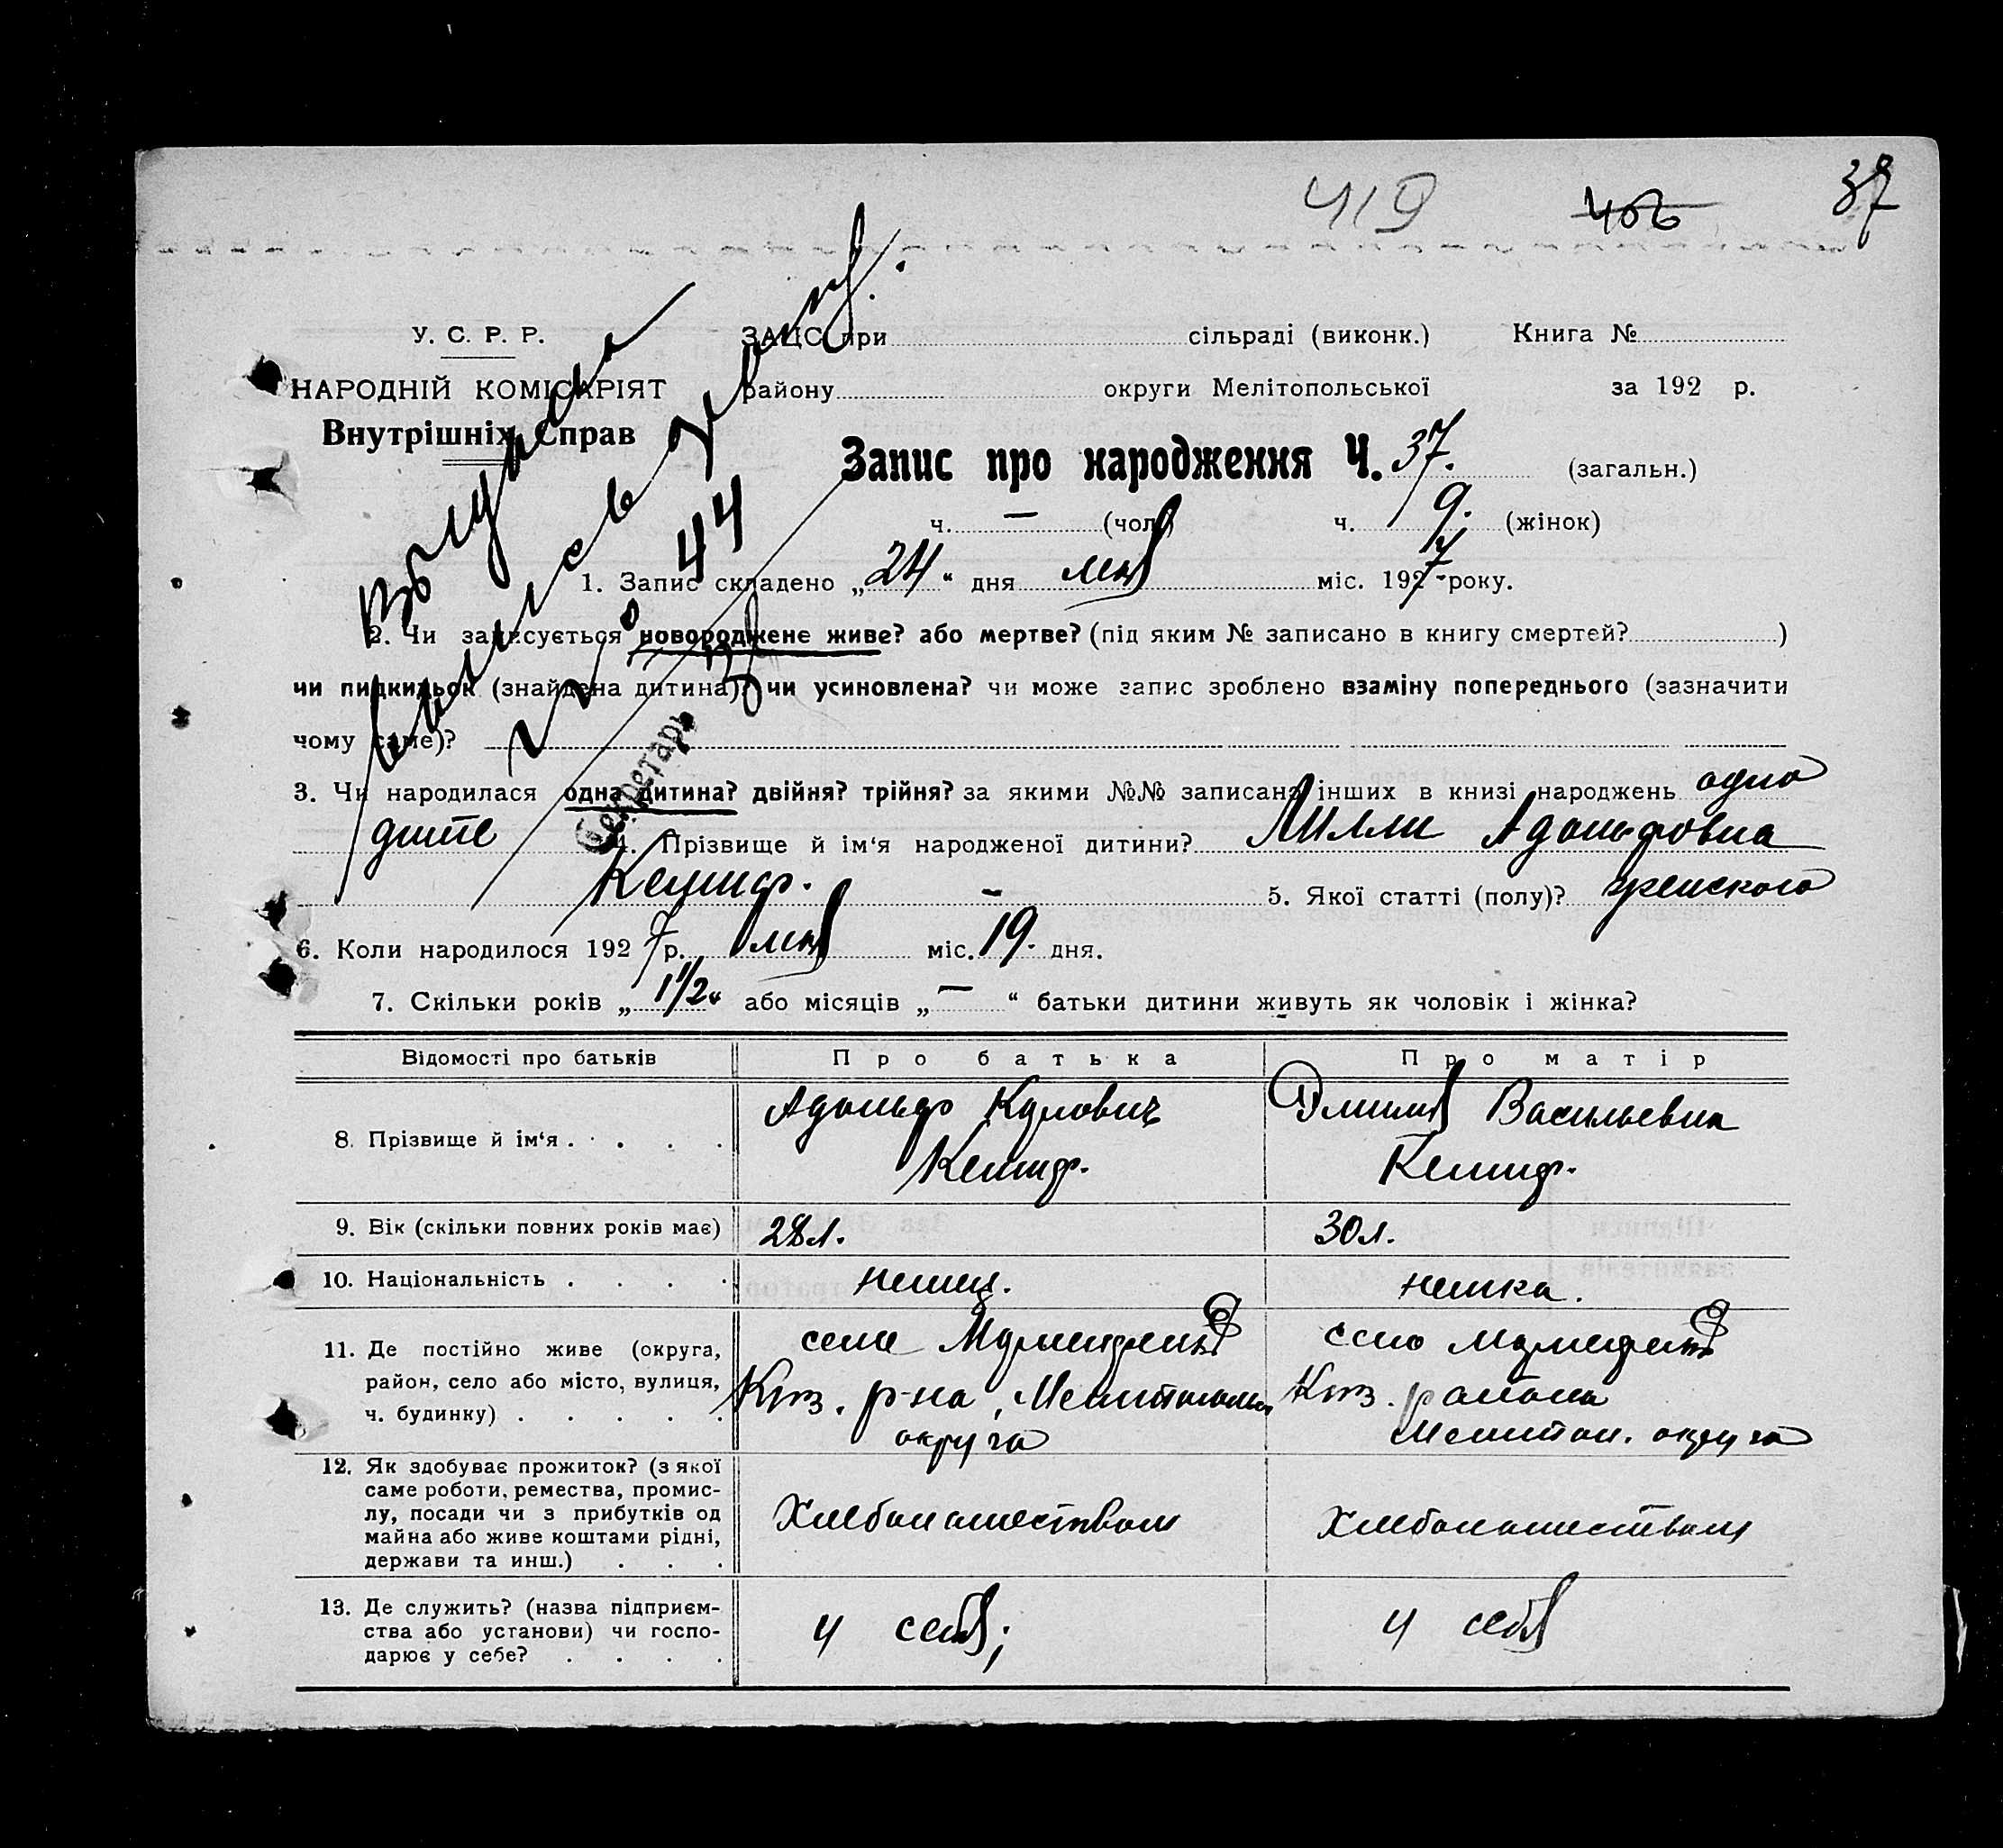 419 406 37
У. С. Р. Р.
НАРОДНІЙ КОМІСАРІЯТ
Внутрішніх Справ
ЗАЦС при сільраді (виконк.) Книга №
району округи Мелітопольської за 192 р.
Запис про народження Ч. 37. (загальн.)
ч. — (чол.) ч. 9. (жінок)
44
1. Запис складено „24“ дня мая міс. 1927 року.
2. Чи записується новороджене живе? або мертве? (під яким № записано в книгу смертей? )
чи пидкидьок (знайдена дитина)? чи усиновлена? чи може запис зроблено взаміну попереднього (зазначити
чому саме)?
Секретарь
3. Чи народилася одна дитина? двійня? трійня? за якими №№ записано інших в книзі народжень одно
дите 4. Прізвище й ім'я народженої дитини? Лилли Адольфовна
5. Якої статті (полу)? женского
6. Коли народилося 1927 р. мая міс. 19. дня.
7. Скільки років „1½“ або місяців „—“ батьки дитини живуть як чоловік і жінка?
Відомості про батьків Про батька Про матір
8. Прізвище й ім'я . . . . Адольф Карлович Эмилия Васильевна
9. Вік (скільки повних років має) 28 л. 30 л.
10. Національність . . . . немец. немка.
11. Де постійно живе (округа, село село
район, село або місто, вулиця, р-на, района
ч. будинку) . . . . . округа Мелитоп. округа
12. Як здобуває прожиток? (з якої
саме роботи, ремества, промис-
лу, посади чи з прибутків од Хлебопашеством Хлебопашеством
майна або живе коштами рідні,
держави та инш.) . . .
13. Де служить? (назва підприєм-
ства або установи) чи госпо- у себя; у себя
дарює у себе? . . . .